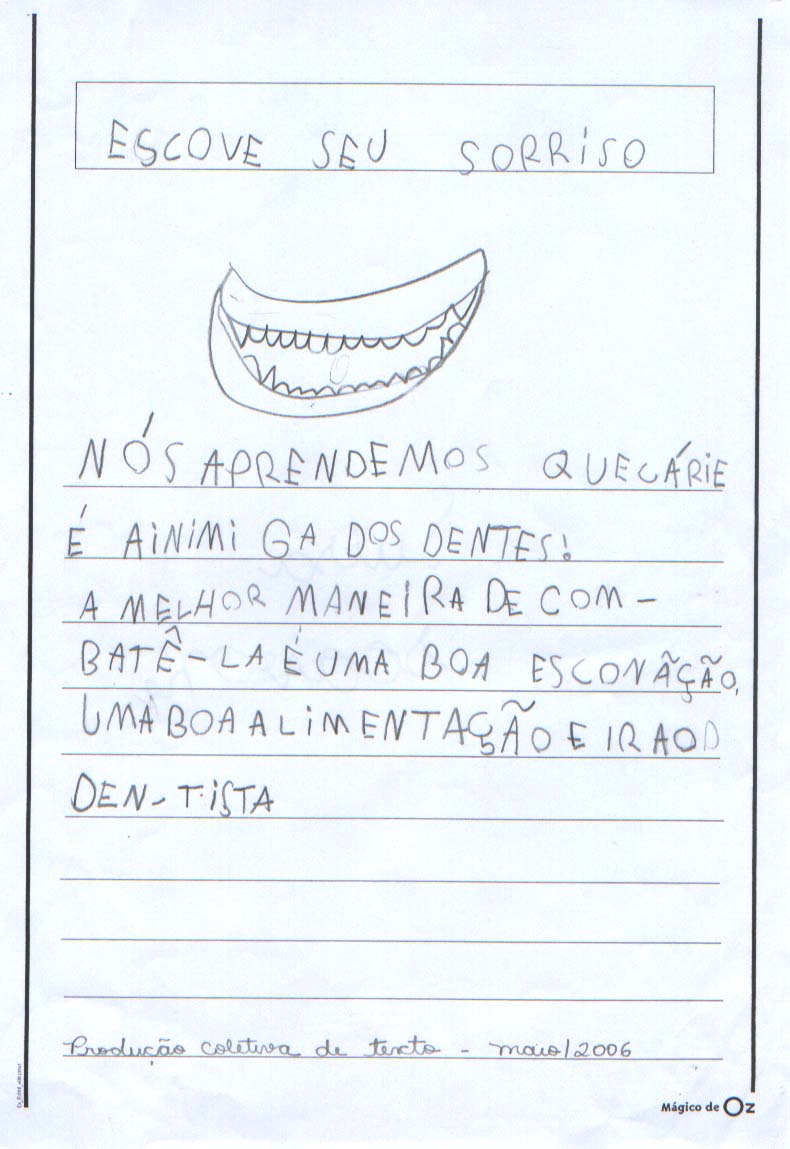 ESCOVE SEU SORRISO
NÓS APRENDEMOS QUE CÁRIE
É A INIMIGA DOS DENTES!
A MELHOR MANEIRA DE COM-
BATÊ-LA É UMA BOA ESCONÃÇÃO,
UMA BOA ALIMENTAÇÃO E IR AO D
DEN-TISTA
Produção coletiva de texto - maio/2006
Mágico de Oz